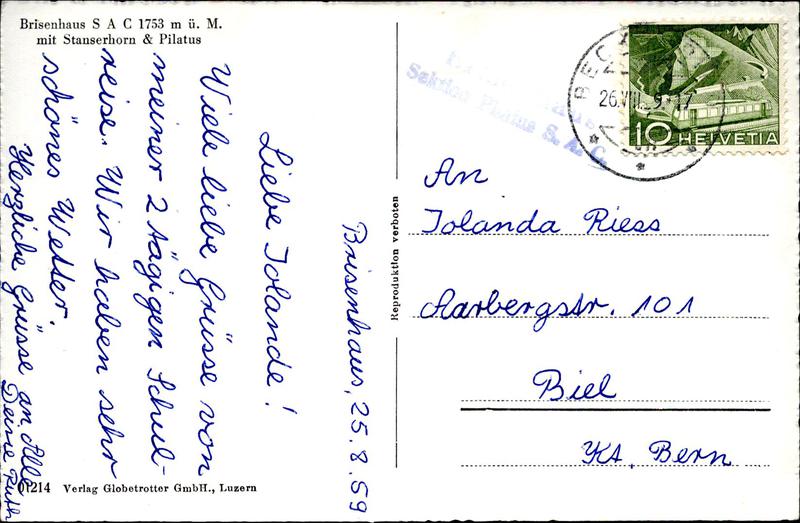 Brisenhaus S A C 1753 m ü. M.
mit Stanserhorn & Pilatus
Brisenhaus, 25.8.59
Liebe Iolande!
Viele liebe Grüsse von
meiner 2 tägigen Schul-
reise. Wir haben sehr
schönes Wetter.
Herzliche Grüsse an Alle
Deine Ruth
01214 Verlag Globetrotter GmbH., Luzern
Reproduktion verboten
Sektion Pilatus S. A. C.
26.VIII.
10 HELVETIA
An
Iolanda Riess
Aarbergstr. 101
Biel
Kt. Bern